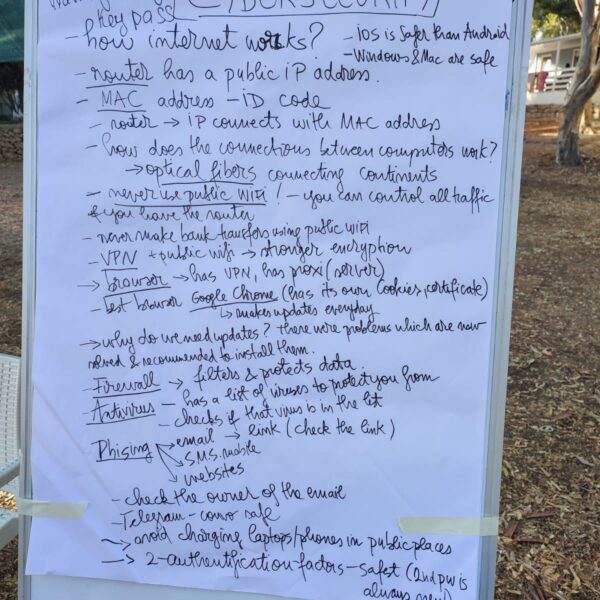 CYBERSECURITY
key pass
- how internet works?
- iOS is safer than Android
- Windows & Mac are safe
- router has a public iP address.
- MAC address - iD code
- router → iP connects with MAC address
- how does the connections between computers work?
→ optical fibers connecting continents
- never use public WiFi! - you can control all traffic
if you have the router
- never make bank transfers using public WiFi
- VPN + public wifi → stronger encryption
→ browser → has VPN, has proxi (server)
- best browser Google Chrome (has its own Cookies, certificate)
↳ makes updates everyday
→ why do we need updates? there were problems which are now
solved & recommended to install them.
- Firewall → filters & protects data.
- Antivirus - has a list of viruses to protect you from
- checks if that virus is in the list
- Phising → email → link (check the link)
→ SMS, mobile
→ websites
- check the owner of the email
- Telegram - convo safe
→ avoid charging laptops/phones in public places
→ 2-authentification-factors - safest (2nd pw is
always new)